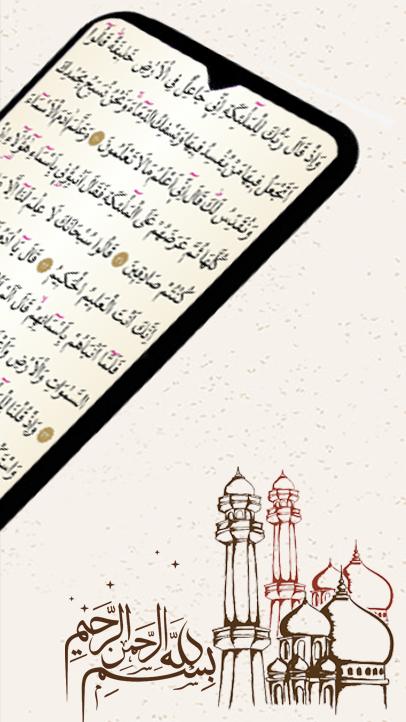 وَإِذْ قَالَ رَبُّكَ لِلْمَلٰٓئِكَةِ اِنّ۪ي جَاعِلٌ فِي الْاَرْضِ خَل۪يفَةًۜ قَالُٓوا
اَتَجْعَلُ ف۪يهَا مَنْ يُفْسِدُ ف۪يهَا وَيَسْفِكُ الدِّمَٓاءَۚ وَنَحْنُ نُسَبِّحُ بِحَمْدِكَ
وَنُقَدِّسُ لَكَۜ قَالَ اِنّ۪ٓي اَعْلَمُ مَا لَا تَعْلَمُونَ ٣٠ وَعَلَّمَ اٰدَمَ الْاَسْمَٓاءَ
كُلَّهَا ثُمَّ عَرَضَهُمْ عَلَى الْمَلٰٓئِكَةِ فَقَالَ اَنْبِؤُ۫ن۪ي بِاَسْمَٓاءِ هٰٓؤُ۬لَٓاءِ
كُنْتُمْ صَادِق۪ينَ ٣١ قَالُوا سُبْحَانَكَ لَا عِلْمَ لَنَٓا اِلَّا
اِنَّكَ اَنْتَ الْعَل۪يمُ الْحَك۪يمُ ٣٢ قَالَ يَٓا اٰدَمُ
فَلَمَّٓا اَنْبَاَهُمْ بِاَسْمَٓائِهِمْۙ قَالَ
السَّمٰوَاتِ وَالْاَرْضِۙ
٣٣ وَاِذْ قُلْنَا
بِسْمِ اللهِ الرَّحْمٰنِ الرَّحِيْمِ